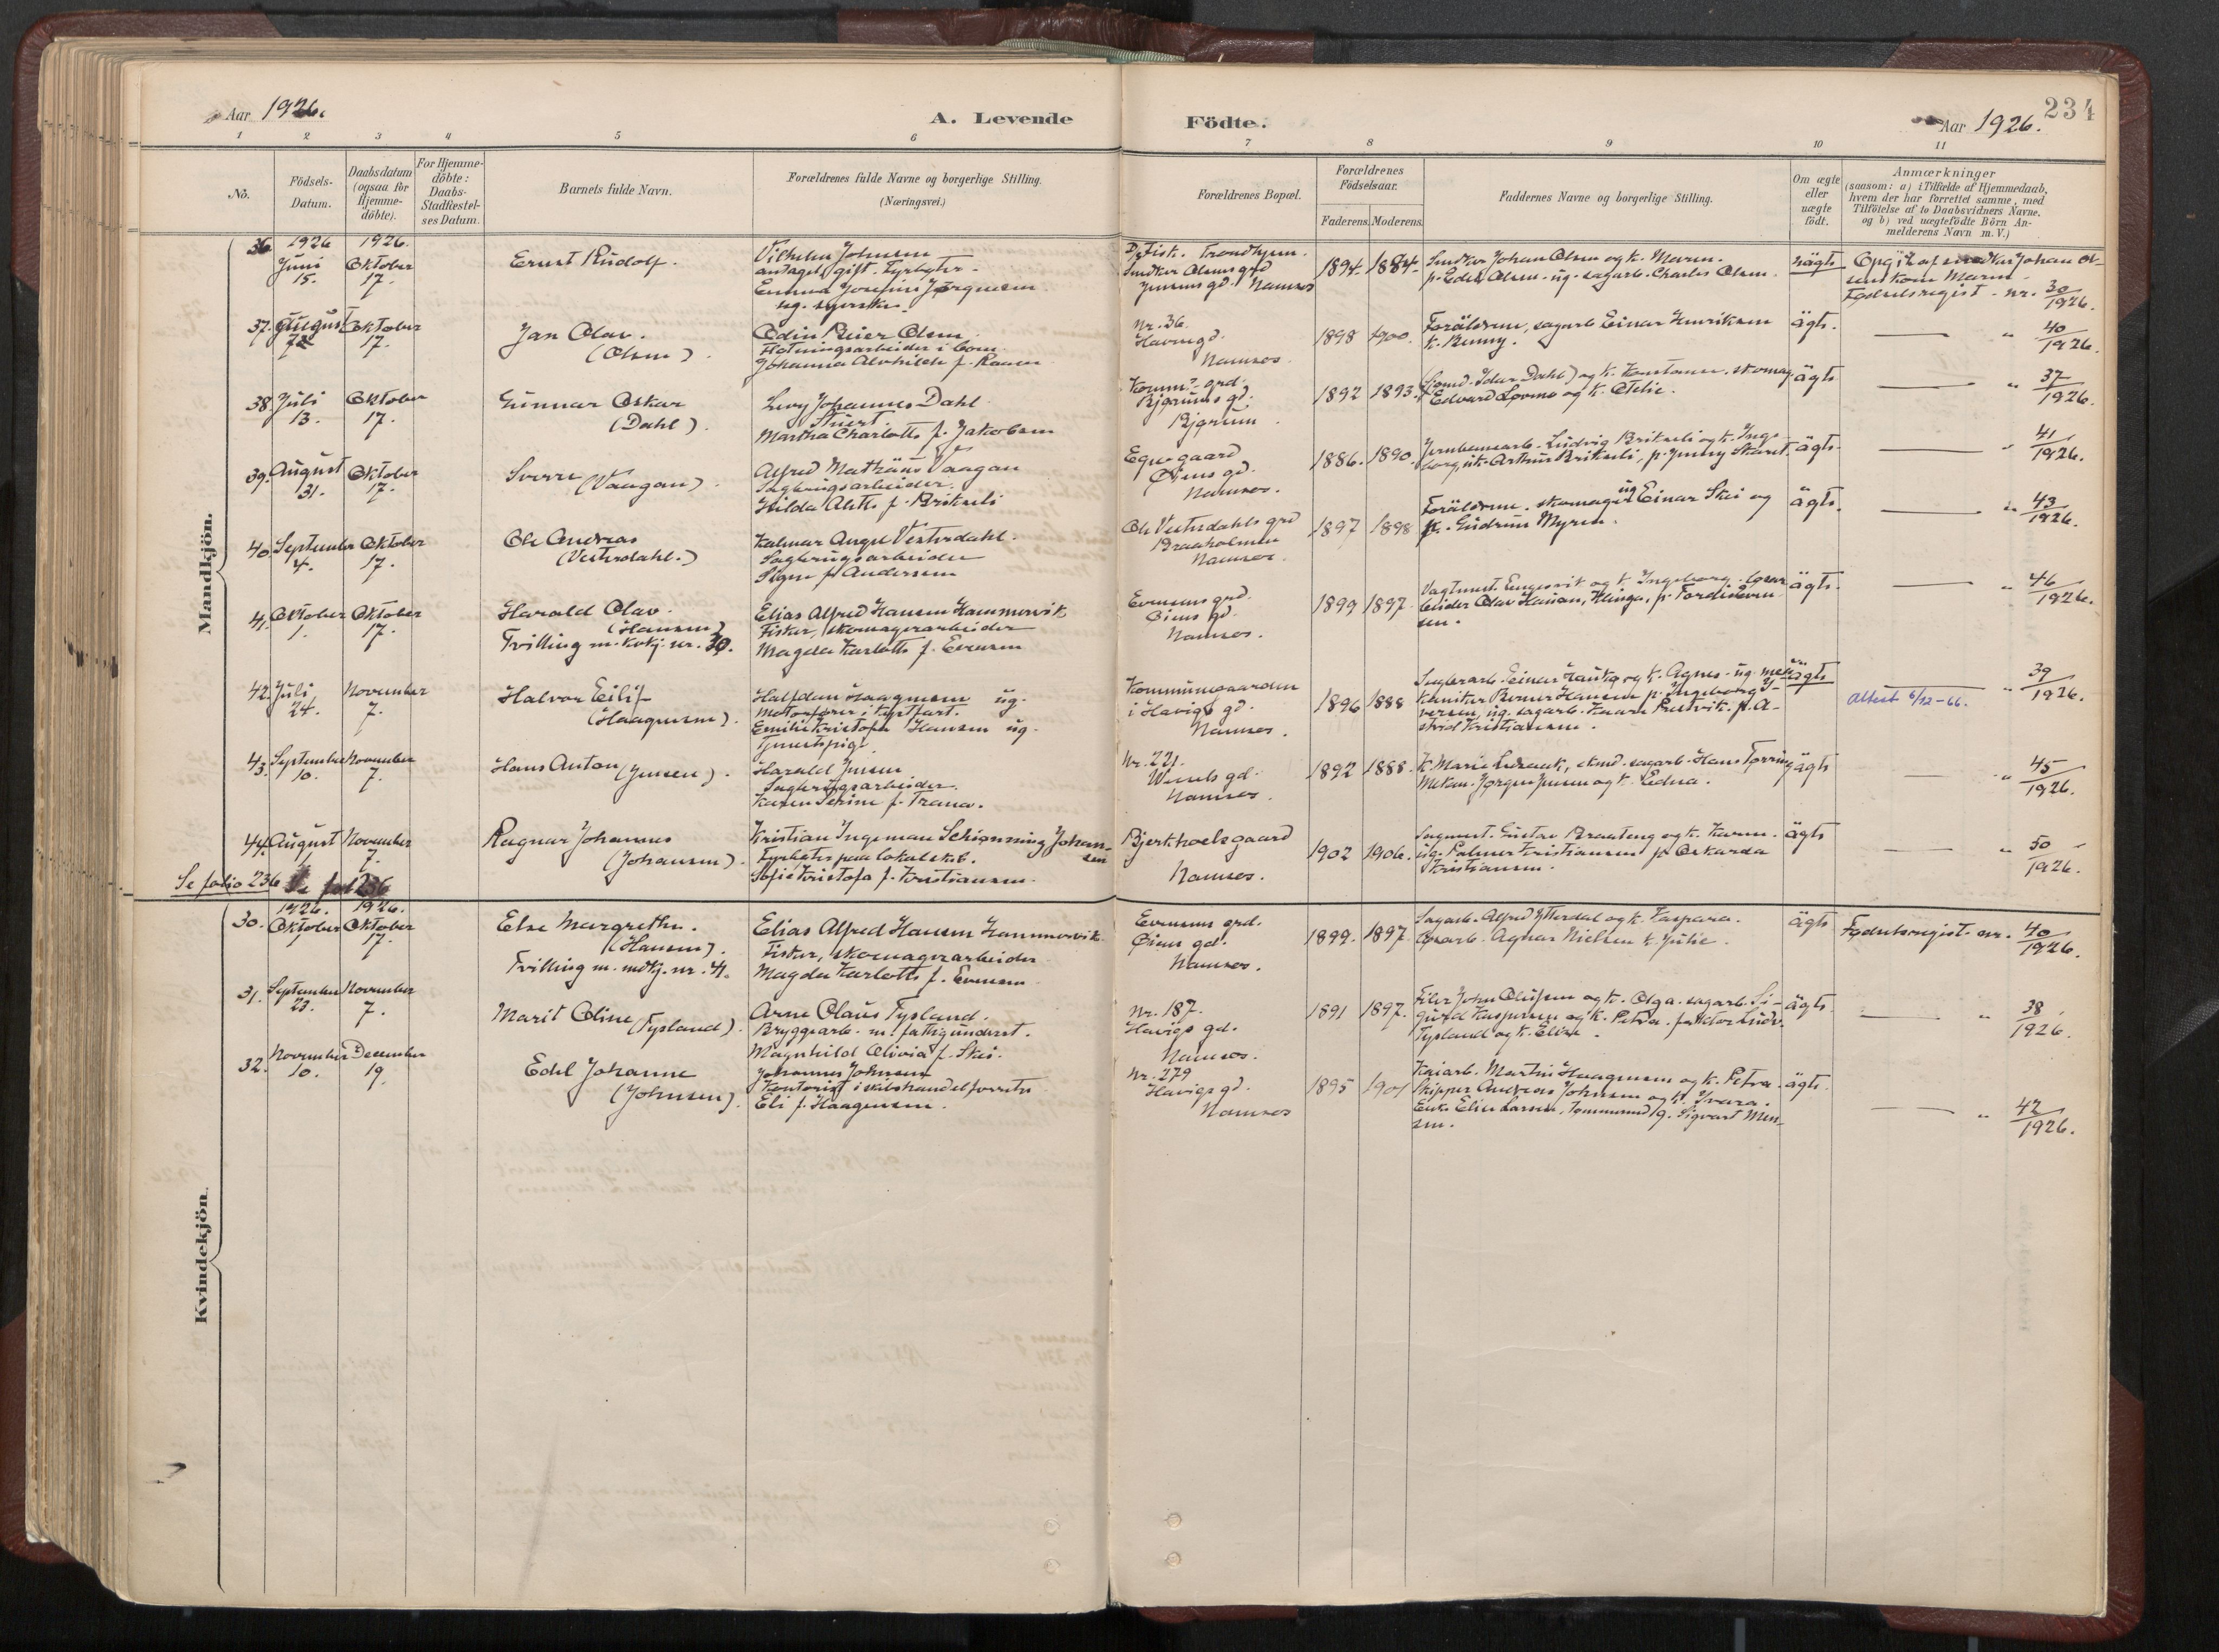 Aar 1926.
A. Levende
Födte.
Aar 1926.
234
1 2 3 4 5 6 7 8 9 10 11
No.
Födsels-
Datum.
Daabsdatum
(ogsaa for
Hjemme-
döbte).
For Hjemme-
döbte:
Daabs-
Stadfæstel-
ses Datum.
Barnets fulde Navn.
Forældrenes fulde Navne og borgerlige Stilling.
(Næringsvei.)
Forældrenes Bopæl.
Forældrenes
Födselsaar.
Faderens. Moderens.
Faddernes Navne og borgerlige Stilling.
Om ægte
eller
uægte
födt.
Anmærkninger
(saasom: a) i Tilfælde af Hjemmedaab,
hvem der har forrettet samme, med
Tilföielse af to Daabsvidners Navne,
og b) ved uægtefödte Börn An-
melderens Navn m. V.)
Mandkjön.
36. 1926 Juni 15.
1926. Oktober 17.
Ernst Rudolf.
Vilhelm Johnsen
Emma Josefine Jørgensen
ug. syerske.
Namsos
1894. 1884.
Smedkar Johan Olsen og k. Maren.
ug. sagarb. Charles Olsen.
uägte
Fødselsregist. nr. 30/1926.
37. August
Oktober 17.
Jan Olav.
(Olsen)
Odin Reier Olsen
Fløtningsarbeider
Johanna Alvhilde f. Raaen
Nr. 36.
Havingd.
Namsos.
1898 1900.
Forældrene, sagarb. Einar Henriksen
k. Benny.
ägte.
" 40/1926.
38. Juli 13.
Oktober 17.
Gunnar Oskar
(Dahl).
Levy Johannes Dahl
Stuert.
Martha Charlotte f. Jakobsen
Komm. grd.
Bjørums gd.
Bjørum
1892 1893.
Edvard Lovmo og k. Otelie.
ägte
" 37/1926.
39. August 31.
Oktober 17.
Sverre (Vaagan).
Alfred Mathæus Vaagan
Sagbrugsarbeider.
Hilda f. Brikseli
Egne gaard
Øiens gd.
Namsos.
1886. 1890.
Jernbanearb. Ludvig Brikseli og k. Inge-
borg, Arthur Brikseli. p. Jenny Skaret.
ägte.
" 41/1926.
40. September 4.
Oktober 17.
Ole Andreas
(Vesterdahl.)
Kalmar Angel Vesterdahl.
Sagbrugsarbeider
Signe f. Andersen
Ole Vesterdahls grd
Braaholmen
Namsos.
1897 1898
Forældrene. skomager ug Einar Skei og
p. Gudrun Myren.
ägte.
" 43/1926.
41. Oktober 1.
Oktober 17.
Harald Olav.
(Hansen)
Tvilling m. kvkj. nr. 30.
Elias Alfred Hansen Hammervik
Fisker, skomagerarbeider
Magda Karlotte f. Evensen
Evensens grd.
Øiens gd.
Namsos.
1899 1897.
Vagtmest. Engesvik og k. Ingeborg.
Olav Hanan, Klinga, p.
sen.
ägte.
" 46/1926.
42. Juli 24.
November 7.
Halvor Eilif
(Haagensen).
Halfdan Haagensen ug.
Motorfører i kystfart.
Emilie Kristofa Hansen ug.
Tjenestepige.
Kommunegaarden
i Havigs gd.
Namsos.
1896 1888
Sagbrarb. Einar og k. Agnes. ug. me-
kaniker Hansen p. Ingeborg I-
versen, ug. sagarb. Kaare Prestvik. p. A-
strid Kristiansen.
uägte
Attest 6/12-66.
" 39/1926.
43. September 10.
November 7.
Hans Anton (Jensen).
Harald Jensen
Sagbrugsarbeider.
Karen Serine f. Trana.
Nr. 221.
Namsos.
1892 1888.
sagarb. Hans Tørring
Mekan. Jørgen Jensen og k. Edna.
ägte
" 45/1926.
44. August
November 7.
Ragnar Johannes
(Johansen).
Kristian Ingeman Schiønning Johan-
sen
Fyrbøter paa lokalskib.
Sofie Kristofa f. Kristiansen.
Bjerkhoelsgaard
Namsos.
1902 1906.
Sagmest. Gustav Braateng og k. Karen.
ug. Palmer Kristiansen p. Oskarda
Kristiansen.
ägte
" 50/1926.
Se folio 236
Se fol 236
Kvindekjön.
30. 1926. Oktober 1
1926. Oktober 17.
Else Margrethe.
(Hansen).
Tvilling m. mdkj. nr. 41.
Elias Alfred Hansen Hammervik
Fisker, skomagerarbeider
Magda Karlotte f. Evensen
Evensens grd.
Øiens gd.
Namsos.
1899. 1897.
Sagarb. Alfred Ytterdal og k. Kaspara.
Agnar Nielsen k. Julie.
ägte
Fødselsregist. nr. 40/1926.
31. September 23.
November 7.
Marit Oline (Tysland).
Arne Olaus Tysland.
Bryggearb. m. fattigunderst.
Magnhild Olivia f. Skei.
Nr. 187.
Havigs gd.
Namsos.
1891 1897.
Filer John Olufsen og k. Olga. sagarb. Si-
gurd Kaspersen og k. Petra.
Tysland og k. Elise.
ägte.
" 38/1926.
32. November 10.
December 19.
Edel Johanne
(Johnsen).
Johannes Johnsen
Kontorist i skibshandelforretn.
Eli f. Haagensen.
Nr. 279
Havigs gd.
Namsos
1895 1901
Kaiarb. Martin Haagensen og k. Petra
Skipper Andreas Johnsen og k. Ivara.
Enke Elise Larsen, Sigvart Mon-
sen.
ägte.
" 42/1926.